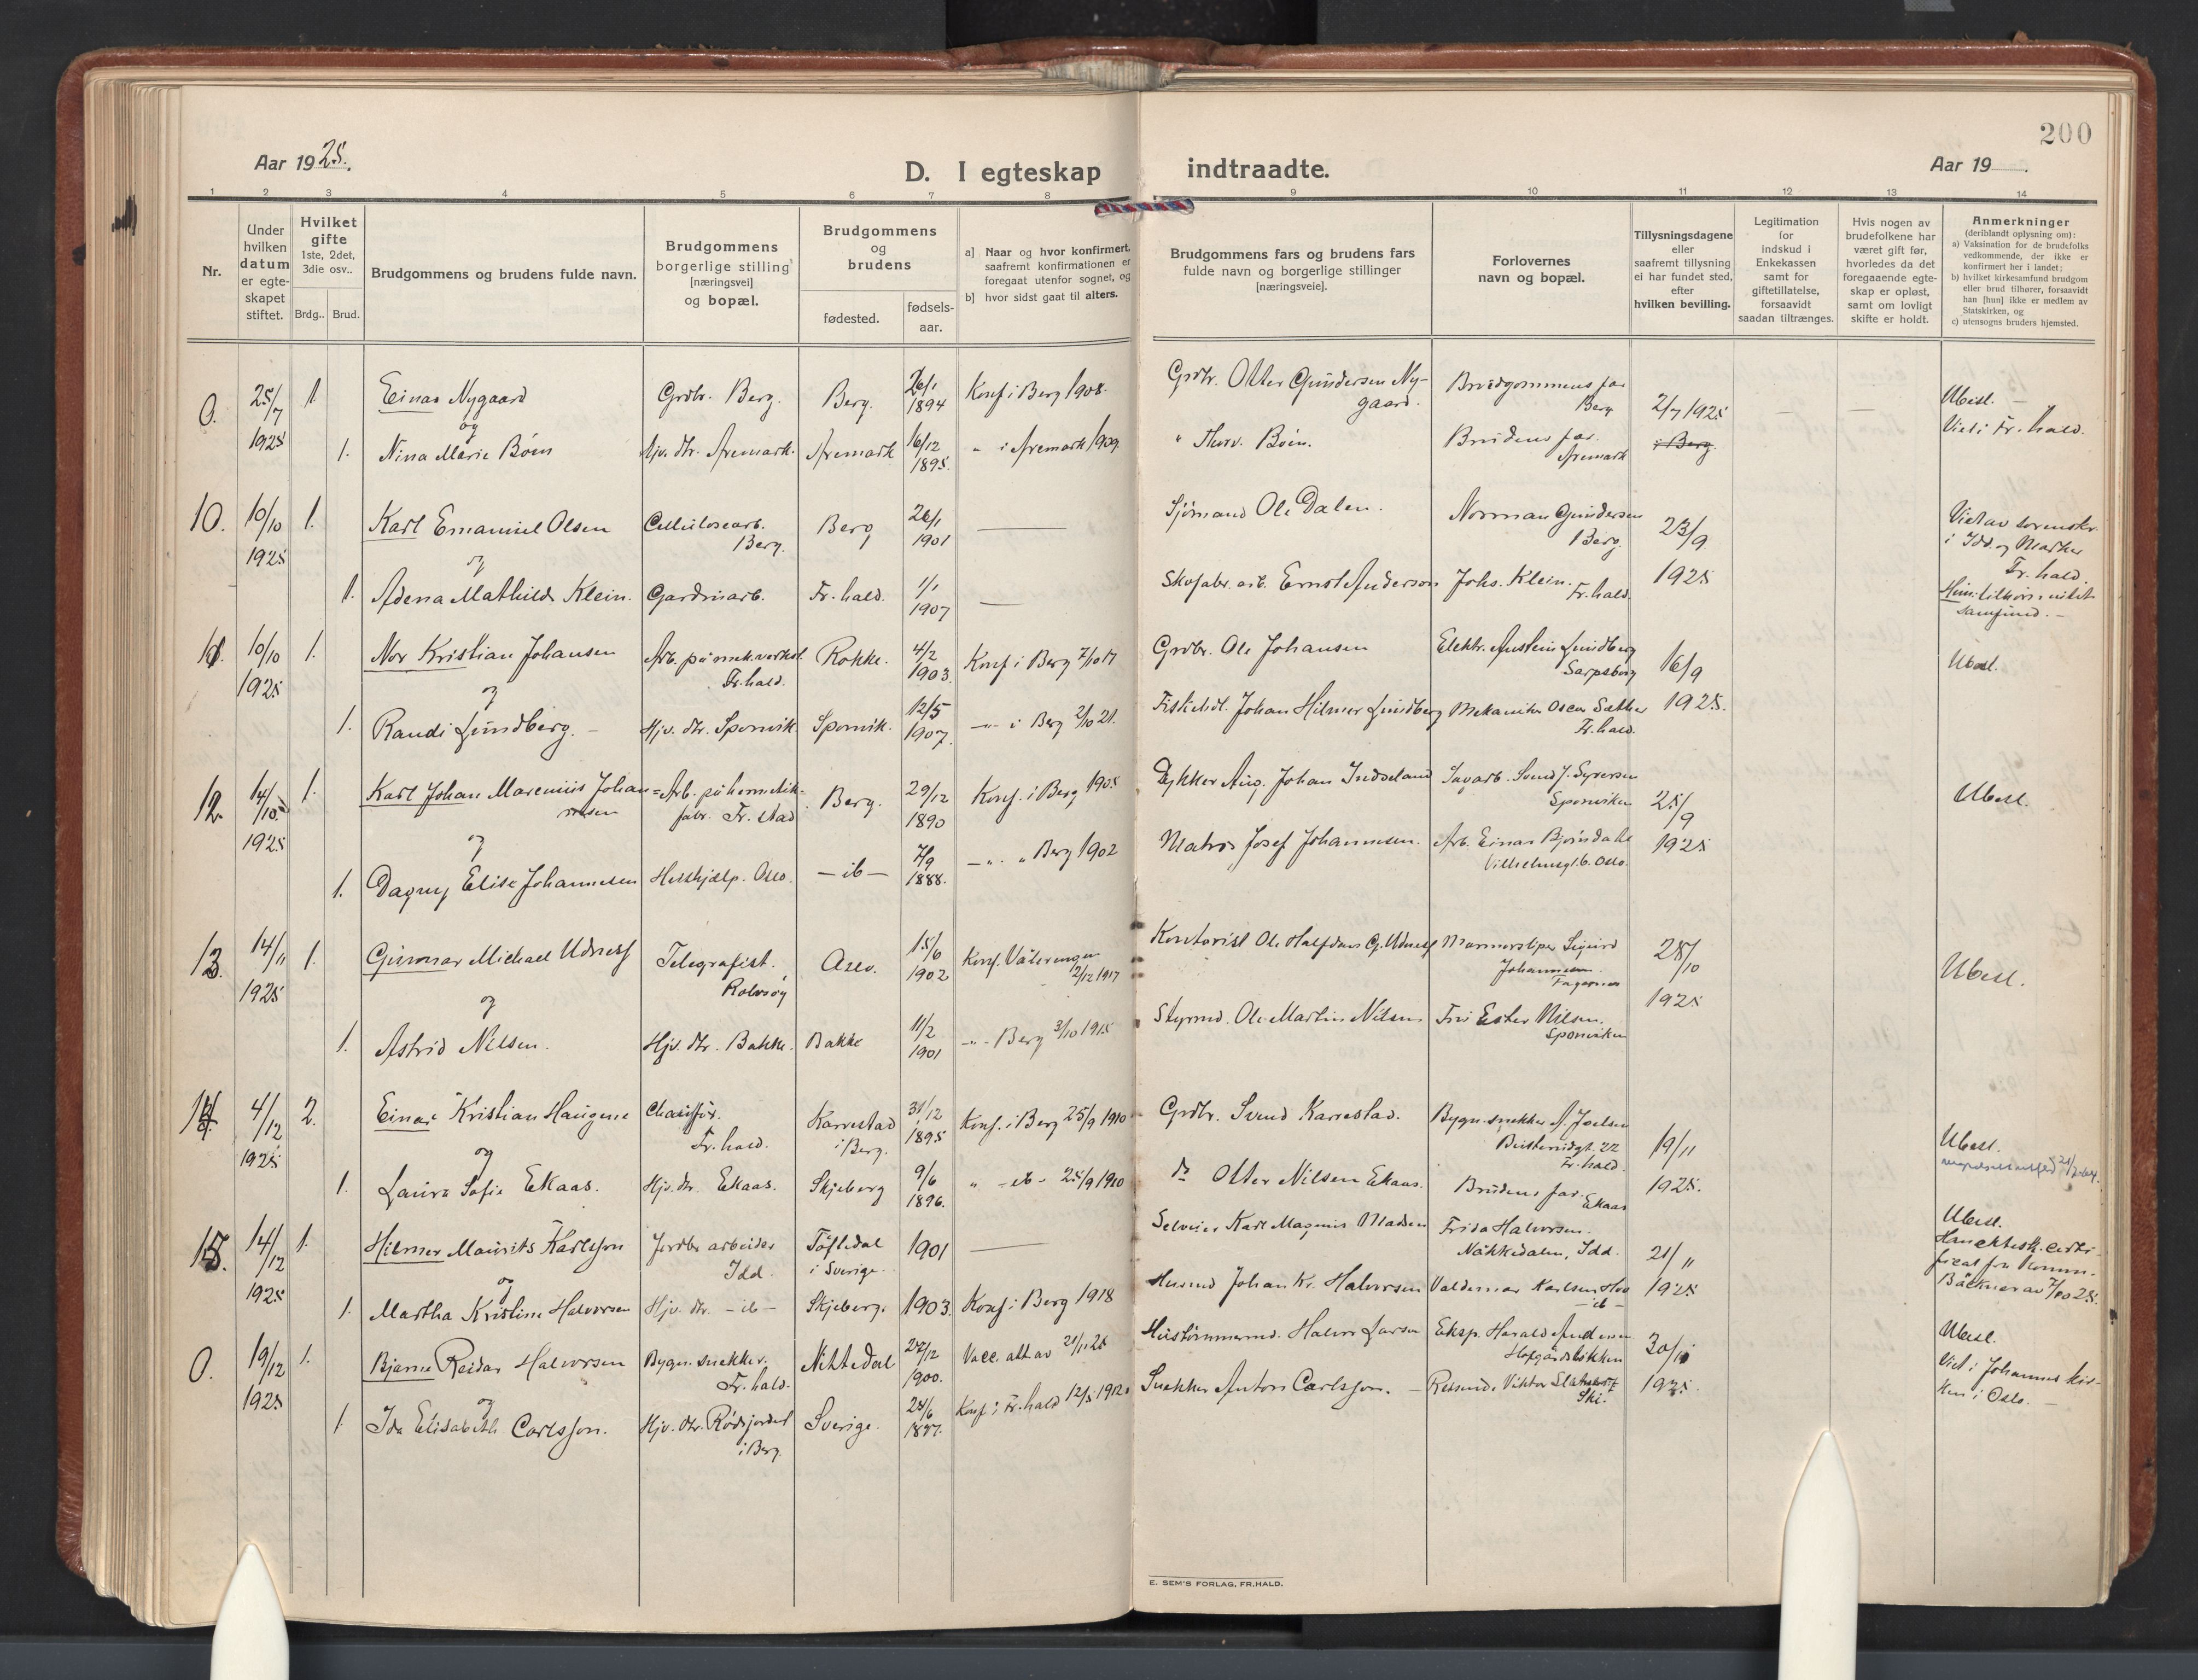 200
Aar 1925.
D. I egteskap indtraadte.
Aar 19
1 2 3 4 5 6 7 8 9 10 11 12 13 14
Nr.
Under hvilken datum er egte-skapet stiftet.
Hvilket gifte
1ste, 2det, 3die osv..
Brdg.. Brud.
Brudgommens og brudens fulde navn.
Brudgommens borgerlige stilling [næringsvei] og bopæl.
Brudgommens og brudens
fødested.
fødsels-aar.
a] Naar og hvor konfirmert, saafremt konfirmationen er foregaat utenfor sognet, og
b] hvor sidst gaat til alters.
Brudgommens fars og brudens fars fulde navn og borgerlige stillinger [næringsveie].
Forlovernes navn og bopæl.
Tillysningsdagene eller saafremt tillysning ei har fundet sted, efter hvilken bevilling.
Legitimation for indskud i Enkekassen samt for giftetillatelse, forsaavidt saadan tiltrænges.
Hvis nogen av brudefolkene har været gift før, hvorledes da det foregaaende egte-skap er opløst, samt om lovligt skifte er holdt.
Anmerkninger
(deriblandt oplysning om):
a) Vaksination for de brudefolks vedkommende, der ikke er konfirmert her i landet;
b) hvilket kirkesamfund brudgom eller brud tilhører, forsaavidt han [hun] ikke er medlem av Statskirken, og
c) utensogns bruders hjemsted.
0. 25/7 1925 1 Einar Nygaard Grdbr. Berg. Berg. 26/1 1894 Konf. i Berg 1908. Grdbr. Otter Gundersen Nygaard. Brudgommens far Berg 2/7 1925 — — Ubesl. —
og
1. Nina Marie Böen Hjv. dtr. Aremark. Aremark 16/12 1895. " i Aremark 1909. " Thorv. Böen. Brudens far. Aremark i Berg. Viet i Fr.hald.
10. 10/10 1925 1. Karl Emanuel Olsen Cellulosearb. Berg. Berg 26/1 1901 — Sjömand Ole Dalen. Norman Gundersen Berg. 23/9 1925 Viet av sorenskr. i Idd og Marker Fr.hald.
og
1. Adena Mathilde Klein. Gardinarb. Fr.hald. 1/1 1907 — Skofabr. arb. Ernst Anderson Johs. Klein. Fr.hald.
11. 10/10 1925 1. Nor Kristian Johansen Arb. på mek. verkst. Fr.hald. Rokke. 4/2 1903. Konf. i Berg 7/10 17 Grdbr. Ole Johansen Elektr. Austein Lundberg Sarpsborg 16/9 1925. Ubesl.
og
1. Randi Lundberg. — Hjv. dtr. Sponvik Sponvik. 12/5 1907. —"— i Berg 2/10 21. Johan Hilmer Lundberg Mekaniker Oscar Sæther Fr.hald.
12. 14/10 1925 1. Karl Johan Marenius Johan= Arb. på hermetikfabr. Fr.stad Berg. 29/12 1890 Konf. i Berg 1905 Aug. Johan Indseland Sagarb. Svend J. Syversen Sponviken 25/9 1925 Ubesl.
og
1. Dagny Elise Johannesen Hushjælp. Oslo. — ib — 7/9 1888. —"— " Berg 1902 Matros Josef Johannesen. Arb. Einar Björndahl Vilhelmsgt. 6. Oslo.
13. 14/11 1925 1. Gunnar Michael Udness Telegrafist. Rolvsöy Oslo. 15/6 1902 Konf. Vålerengen 2/12 1917 Kontorist Ole Halfdan G. Udness Marmorsliper Sigurd Johannesen. 28/10 1925 Ubesl.
og
1. Astrid Nilsen. Hjv. dtr. Bakke. Bakke 11/2 1901 —"— Berg 3/10 1915 Styrmd. Ole Martin Nilsen Fru Ester Nilsen. Sponviken
14. 4/12 1925 2. Einar Kristian Haugene Chauffør. Fr.hald. Karrestad i Berg. 31/12 1895 Konf. i Berg 25/9 1910 Grdbr. Svend Karrestad. Bygn. snekker A. Joelsen 22 Fr.hald. 19/11 1925. Ubesl.
og
1. Laura Sofie Ekaas. Hjv. dtr. Ekaas. Skjeberg 9/6 1896. " — ib — 25/9 1910 do Otter Nilsen Ekaas. Brudens far. Ekaas
15. 14/12 1925 1. Hilmer Maurits Karlsson Jordbr. arbeider Idd. Töftedal i Sverige. 1901 — Selveier Karl Magnus Madsen Frida Halvorsen. Näkkedalen, Idd. 21/11 1925 Ubesl.
og
1. Martha Kristine Halvorsen Hjv. dtr. — ib — Skjeberg. 1903. Konf. i Berg 1918 Husmd Johan Kr. Halvorsen Valdemar Karlsen — ib —
0. 19/12 1925 1. Bjarne Reidar Halvorsen Bygn. snekker. Fr.hald. Nittedal 27/12 1900. Vacc. att av 21/11 25 Hustömmermd. Halvor Larsen Eksp. Harald Andersen 30/11 1925. Ubesl. Viet i Johannes kirken i Oslo. —
og
1 Ida Elisabeth Carlsson. Hjv. dtr. Rödsjordet i Berg Sverige. 28/6 1897. Konf. i Fr.hald 12/5 1912 Snekker Anton Carlsson. — Viktor Ski.
E. SEM'S FORLAG, FR.HALD.